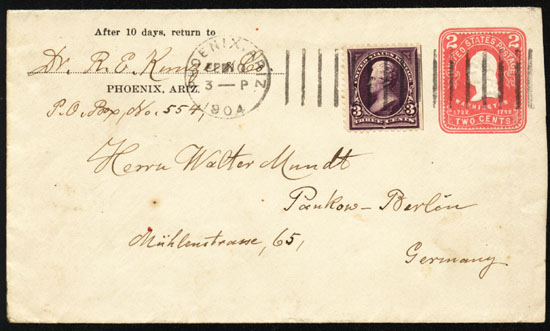 After 10 days, return to
Dr. R. E.
PHOENIX, ARIZ.
P.O. Box, No. 554,
PHOENIX, ARIZ.
3 — P
1904
3 3
THREE CENTS
2 2
UNITED STATES POSTAGE
WASHINGTON
1732 1799
TWO CENTS
Herrn Walter Mundt
Pankow - Berlin
Mühlenstrasse, 65,
Germany